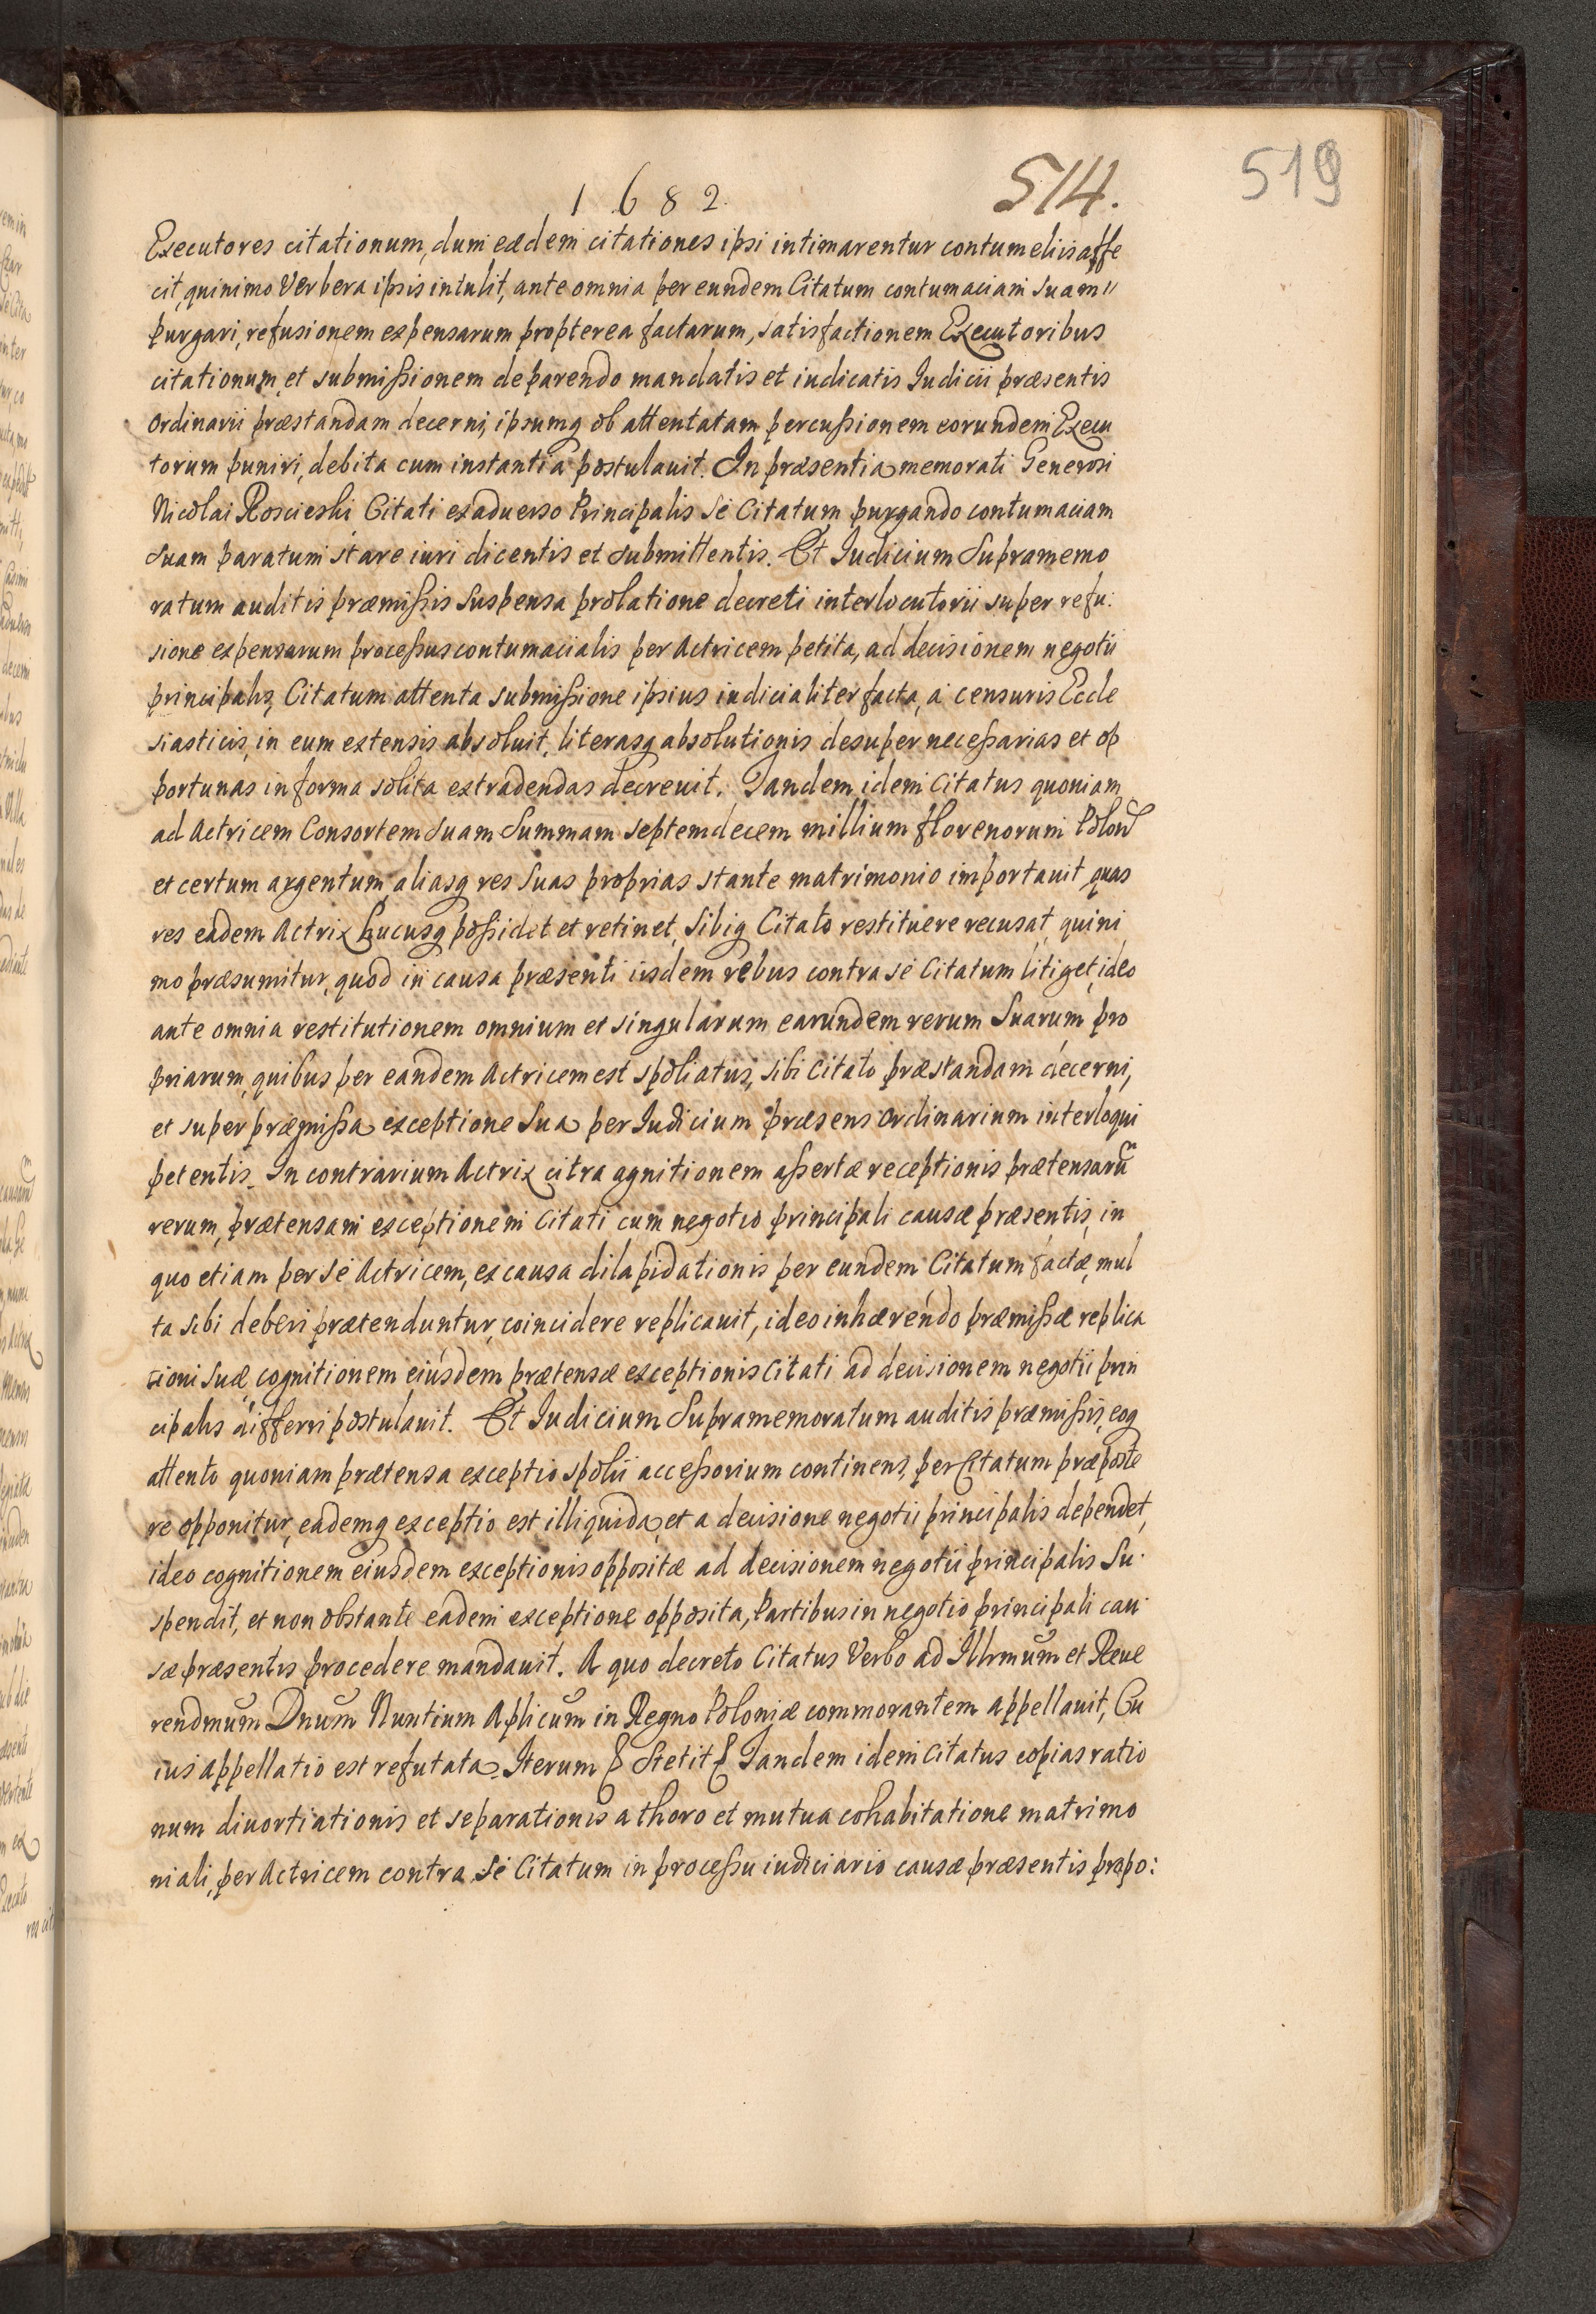 1682
514.
519
Executores citationum, dum eædem citationes ipsi intimarentur contumeliis affe
cit, quinimo Verbera ipsis intulit, ante omnia per eundem Citatum contumaciam suam
purgari, refusionem expensarum propterea factarum, satisfactionem Executoribus
citationum et submißionem de parendo mandatis et iudicatis Iudicii præsentis
Ordinarii præstandam decerni, ipsumq ob attentatam percußionem eorundem Execu
torum puniri, debita cum instantia postulauit. In præsentia memorati Generosi
Nicolai Roscieski Citati ex aduerso Principalis se Citatum purgando contumaciam
suam paratum stare iuri dicentis et submittentis. Et Iudicium Supramemo
ratum auditis præmißis suspensa prolatione decreti interlocutorii super refu:
sione expensarum proceßus contumacialis per Actricem petita, ad decisionem negotii
principalis, Citatum attenta submißione ipsius iudicialiter facta, a censuris Eccle
siasticis, in eum extensis absoluit, literasq absolutionis desuper neceßarias et op
portunas in forma solita extradendas decreuit. Tandem idem Citatus quoniam
ad Actricem Consortem suam Summam septemdecem millium florenorum Polon
et certum argentum, aliasq res suas proprias stante matrimonio importauit, quas
res eadem Actrix hucusq poßidet et retinet, sibiq Citato restituere recusat, quini
mo præsumitur, quod in causa præsenti iisdem rebus contra se Citatum litiget, ideo
ante omnia restitutionem omnium et singularum earundem rerum suarum pro
priarum, quibus per eandem Actricem est spoliatus, sibi Citato præstandam decerni,
et super præmißa exceptione sua per Iudicium præsens Ordinarium interloqui
petentis. In contrarium Actrix citra agnitionem aßertæ receptionis prætensarū
rerum, prætensam exceptionem Citati cum negotio principali causæ præsentis, in
quo etiam per se Actricem, ex causa dilapidationis per eundem Citatum factæ, mul
ta sibi deberi prætenduntur, coincidere replicauit, ideo inhærendo præmißæ replica
tioni suæ cognitionem eiusdem prætensæ exceptionis Citati ad decisionem negotii prin
cipalis differri postulauit. Et Iudicium Supramemoratum auditis præmißis, eoq
attento quoniam prætensa exceptio spolii acceßorium continens, per Citatum præposte
re opponitur, eademq exceptio est illiquida, et a decisione negotii principalis dependet,
ideo cognitionem eiusdem exceptionis oppositæ ad decisionem negotii principalis su:
spendit, et non obstante eadem exceptione opposita, Partibus in negotio principali cau
sæ præsentis procedere mandauit. A quo decreto Citatus Verbo ad Illrmum et Reue
rendmum Dnum Nuntium Aplicum in Regno Poloniæ commorantem appellauit, Cu
ius appellatio est refutata. Iterum Stetit Tandem idem Citatus copias ratio
num diuortiationis et separationis a thoro et mutua cohabitatione matrimo
niali, per Actricem contra se Citatum in proceßu iudiciario causæ præsentis propo: